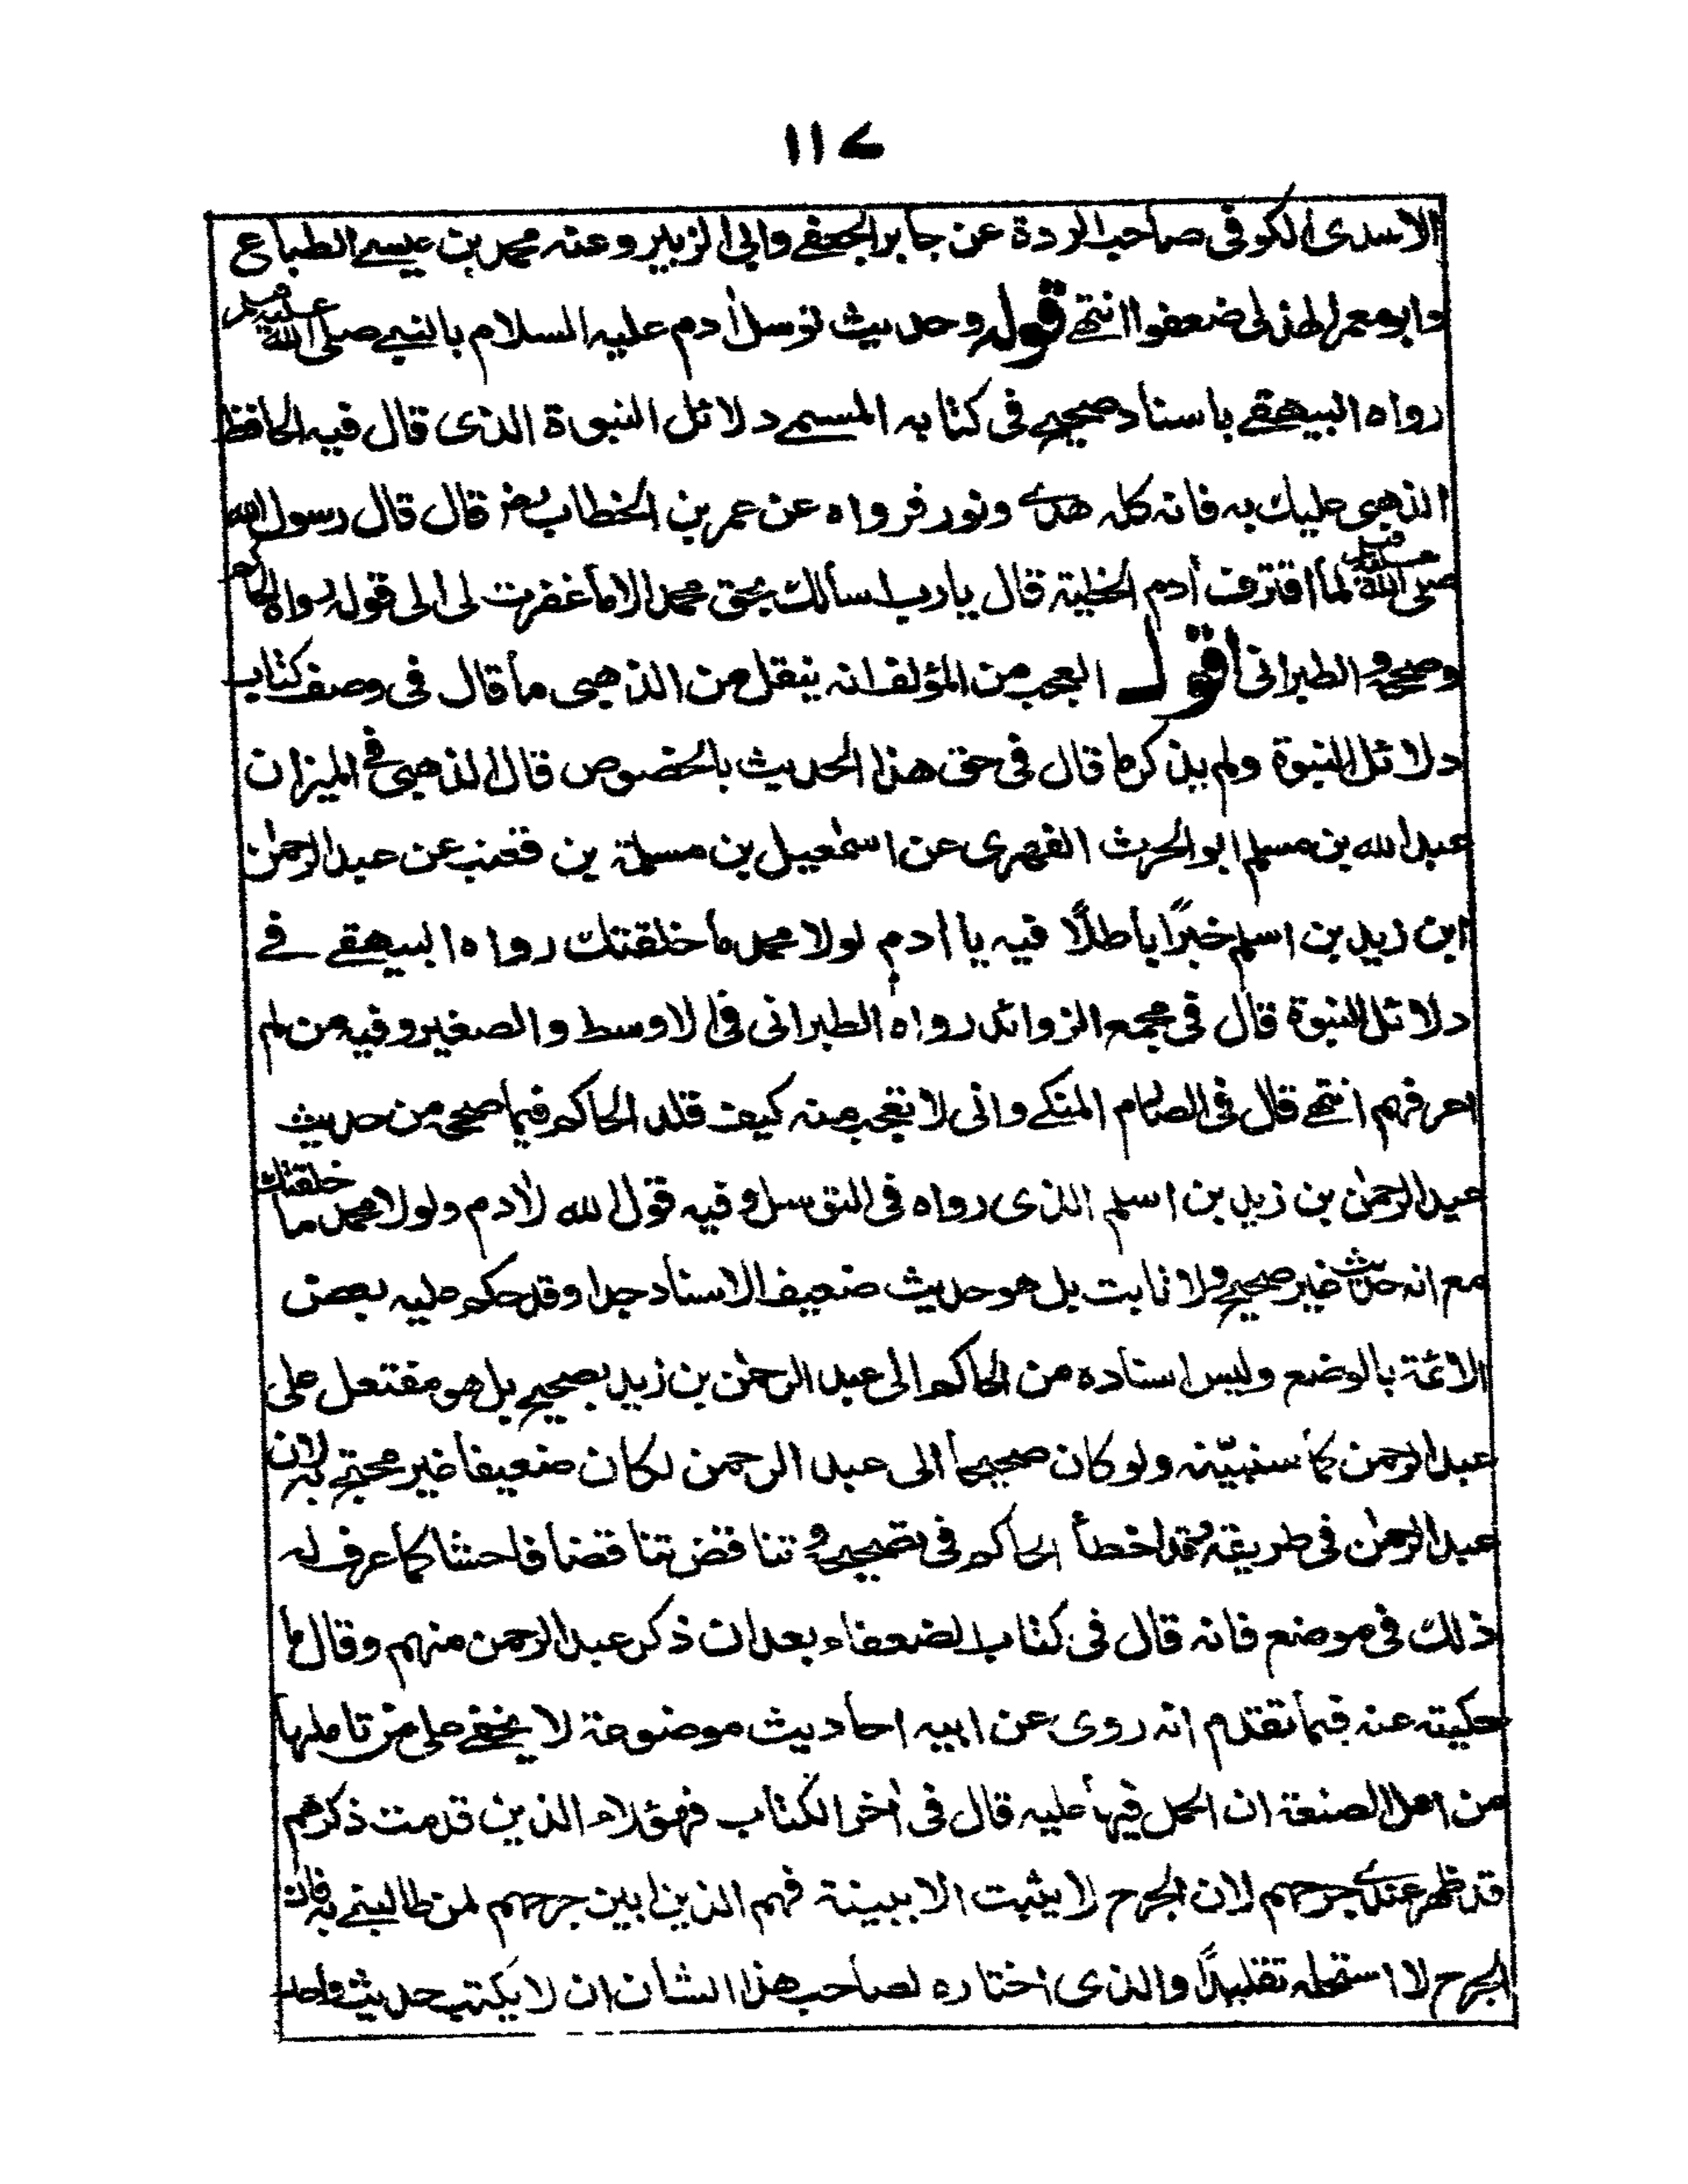 ١١٧
الاسدى الكوفى صاحب الردة عن جابر الجعفے وابى الزبير وعنه محمد بن عيسے الطباع
وابومعمر الهذلى ضعفوا انتهے قوله وحديث توسل اٰدم عليه السلام بالنبے صلى الله عليه وسلم
رواه البيهقے باسناد صحيح فى كتابه المسمے دلائل النبوة الذى قال فيه الحافظ
الذهبى عليك به فانه كله هدے ونور فرواه عن عمر بن الخطاب رض قال قال رسول الله
صلى الله عليه وسلم لما اقترف اٰدم الخطيئة قال يارب اسألك بحق محمد الا ما غفرت لى الى قوله رواه الحاكم
وصححه والطبرانى اقول العجب من المؤلف انه ينقل من الذهبى ما قال فى وصف كتاب
دلائل النبوة ولم يذكر ما قال فى حق هذا الحديث بالخصوص قال الذهبى فے الميزان
عبد الله بن مسلم ابو الحرث الفهرى عن اسمٰعيل بن مسلمة بن قعنب عن عبد الرحمٰن
ابن زيد بن اسلم خبرًا باطلًا فيه يا اٰدم لولا محمد ما خلقتك رواه البيهقے فے
دلائل النبوة قال فى مجمع الزوائد رواه الطبرانى فى الاوسط والصغير وفيه من لم
اعرفهم انتهے قال فى الصارم المنكے وانى لا تعجب منه كيف قلد الحاكم فيما صححه من حديث
عبد الرحمٰن بن زيد بن اسلم الذى رواه فى التوسل وفيه قول الله لاٰدم ولولا محمد ما خلقتك
مع انه حديث غير صحيح ولا ثابت بل هو حديث ضعيف الاسناد جدا وقد حكم عليه بعض
الائمة بالوضع وليس اسناده من الحاكم الى عبد الرحمٰن بن زيد بصحيح بل هو مفتعل على
عبد الرحمن كما سنبيّنه ولو كان صحيحا الى عبد الرحمن لكان ضعيفا غير محتج به لان
عبد الرحمٰن فى طريقه وقد اخطأ الحاكم فى تصحيحه وتناقض تناقضا فاحشا كما عرف له
ذلك فى موضع فانه قال فى كتاب الضعفاء بعد ان ذكر عبد الرحمن منهم وقال ما
حكيته عنه فيما تقدم انه روى عن ابيه احاديث موضوعة لا يخفے على من تاملها
من اهل الصنعة ان الحمل فيها عليه قال فى اٰخر الكتاب فهؤلاء الذين قدمت ذكرهم
قد ظهر عندے جرحهم لان الجرح لا يثبت الا ببينة فهم الذين ابين جرحهم لمن طالبنے به فان
الجرح لا استحله تقليدًا والذى اختاره لصاحب هذا الشان ان لا يكتب حديث واحد